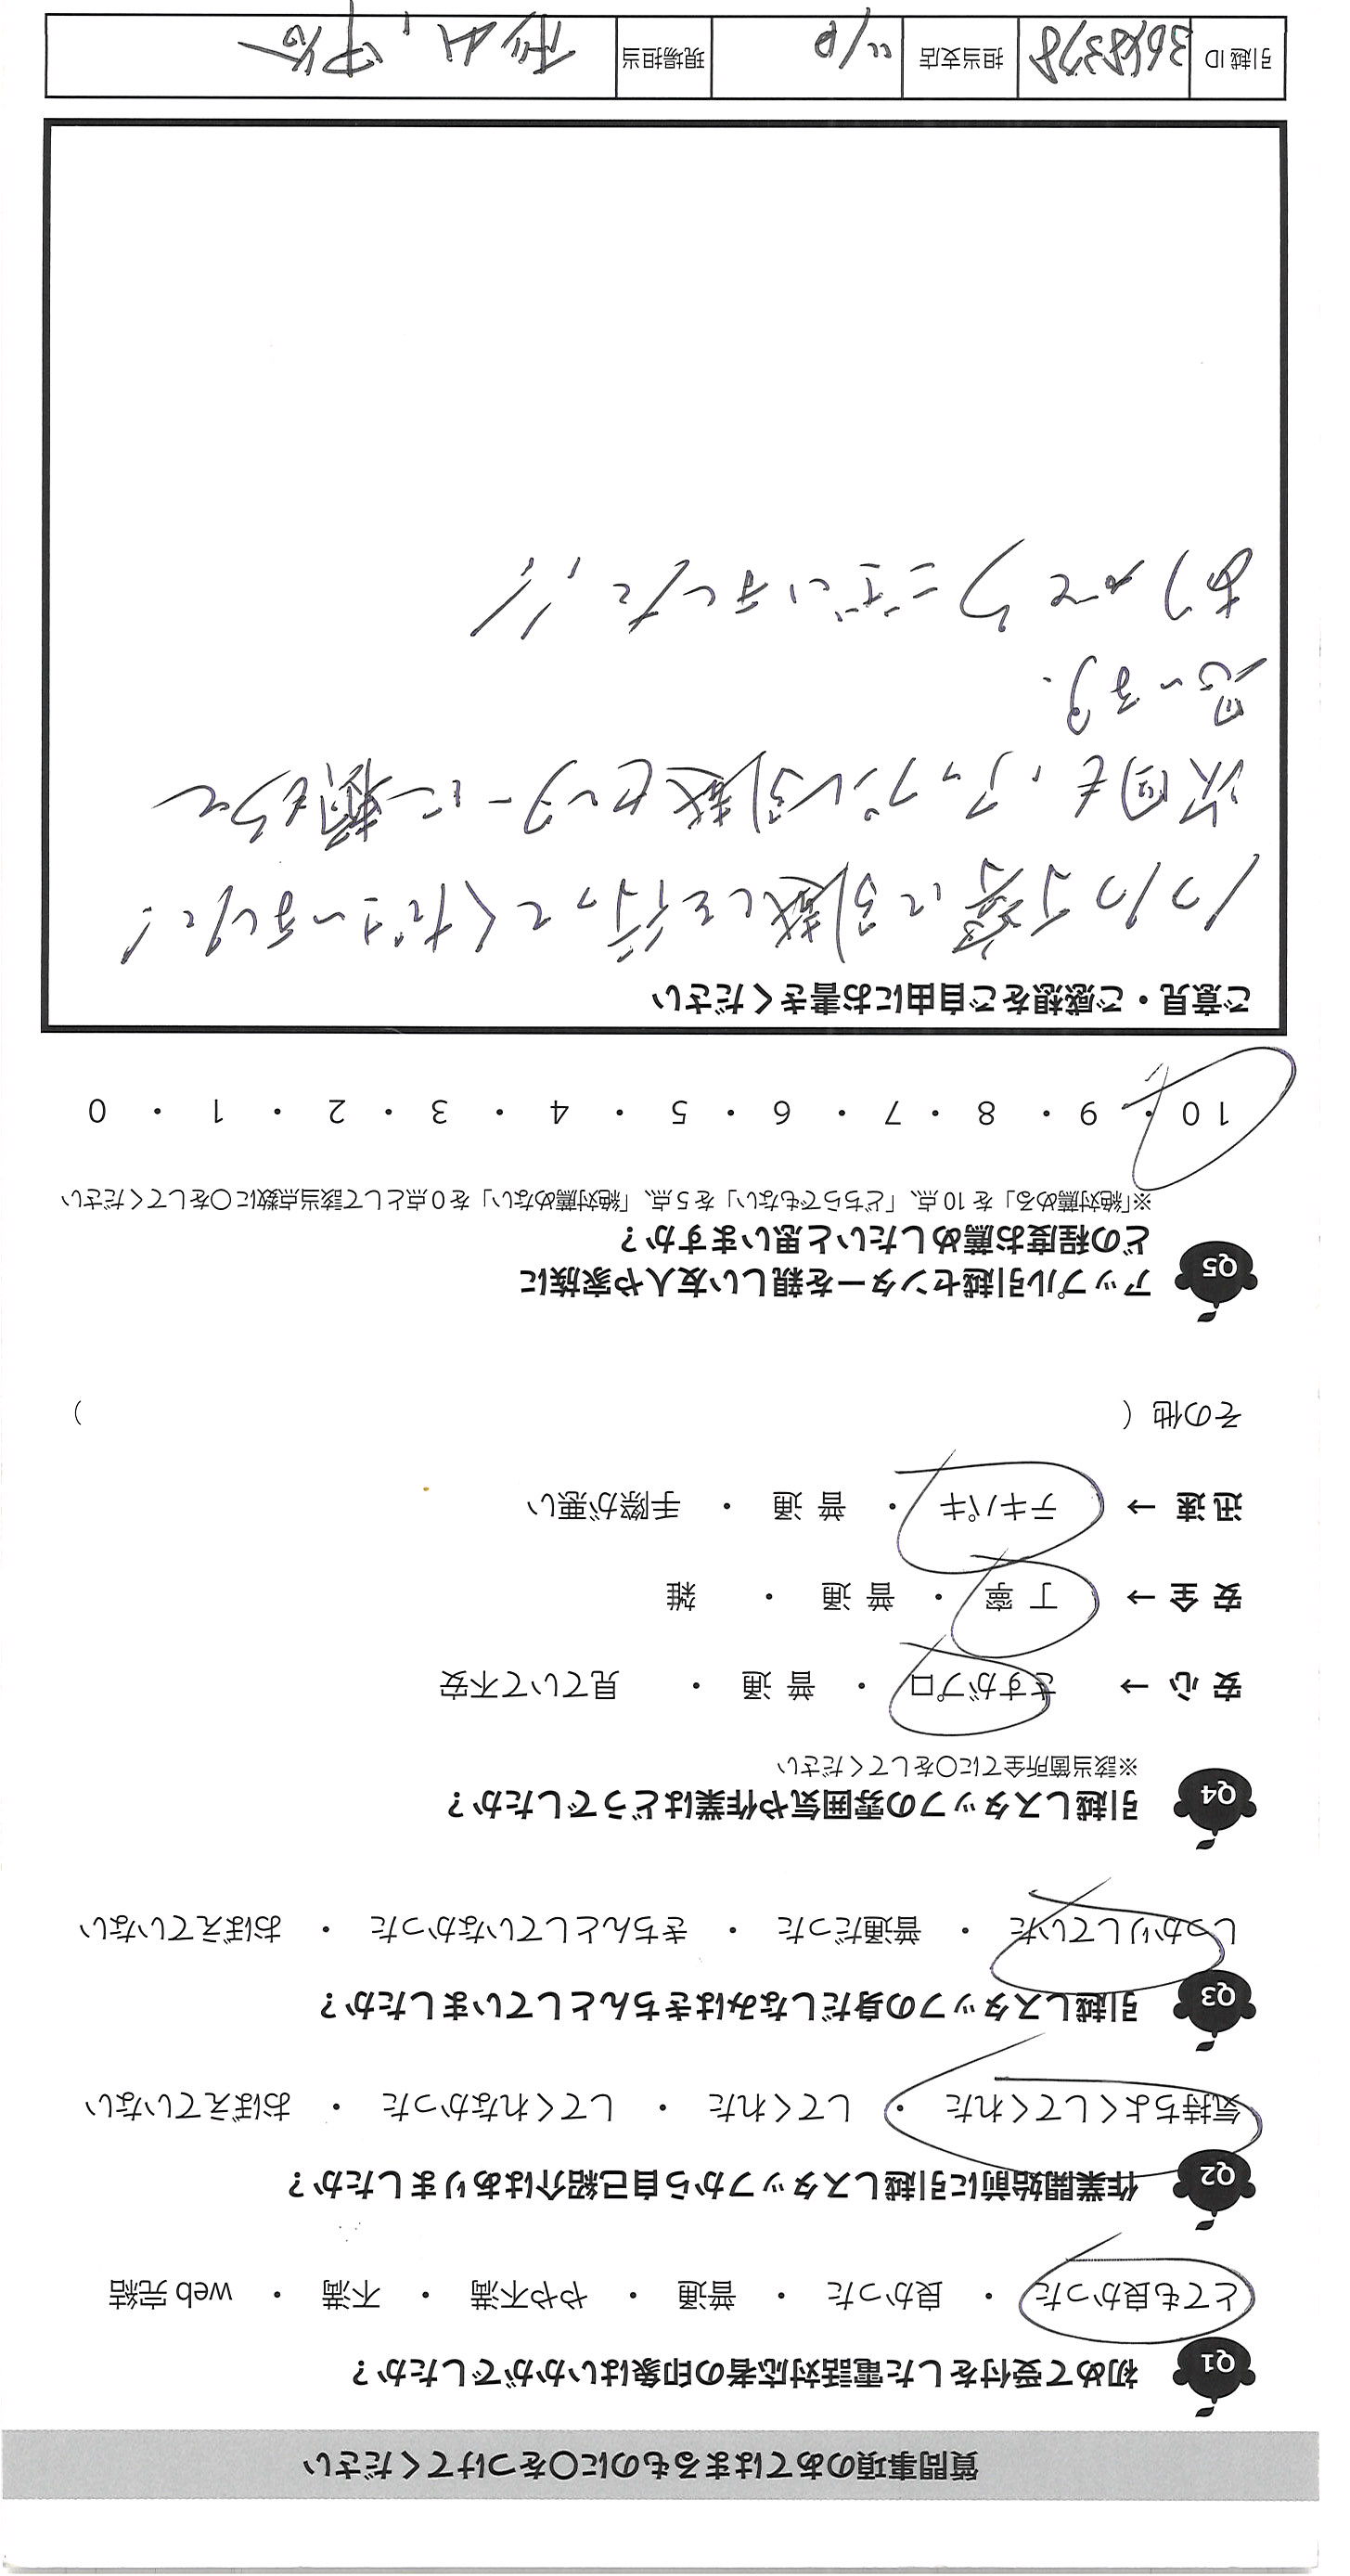 質問事項のあてはまるものに○をつけてください
Q1 初めて受付をした電話対応者の印象はいかがでしたか？
とても良かった ・ 良かった ・ 普通 ・ やや不満 ・ 不満 ・ web 完結
Q2 作業開始前に引越しスタッフから自己紹介はありましたか？
気持ちよくしてくれた ・ してくれた ・ してくれなかった ・ おぼえていない
Q3 引越しスタッフの身だしなみはきちんとしていましたか？
しっかりしていた ・ 普通だった ・ きちんとしていなかった ・ おぼえていない
Q4 引越しスタッフの雰囲気や作業はどうでしたか？
※該当箇所全てに○をしてください
安 心 → さすがプロ ・ 普 通 ・ 見ていて不安
安 全 → 丁 寧 ・ 普 通 ・ 雑
迅 速 → テキパキ ・ 普 通 ・ 手際が悪い
その他（ ）
Q5 アップル引越センターを親しい友人や家族に
どの程度お薦めしたいと思いますか？
※「絶対薦める」を 10 点、「どちらでもない」を 5 点、「絶対薦めない」を 0 点として該当点数に○をしてください
10 ・ 9 ・ 8 ・ 7 ・ 6 ・ 5 ・ 4 ・ 3 ・ 2 ・ 1 ・ 0
ご意見・ご感想をご自由にお書きください
いつも丁寧に引越しを行ってくださいました！
次回も、アップル引越センターに頼もうと
思います。
ありがとうございました！！
引越 ID 担当支店 現場担当 杉山、